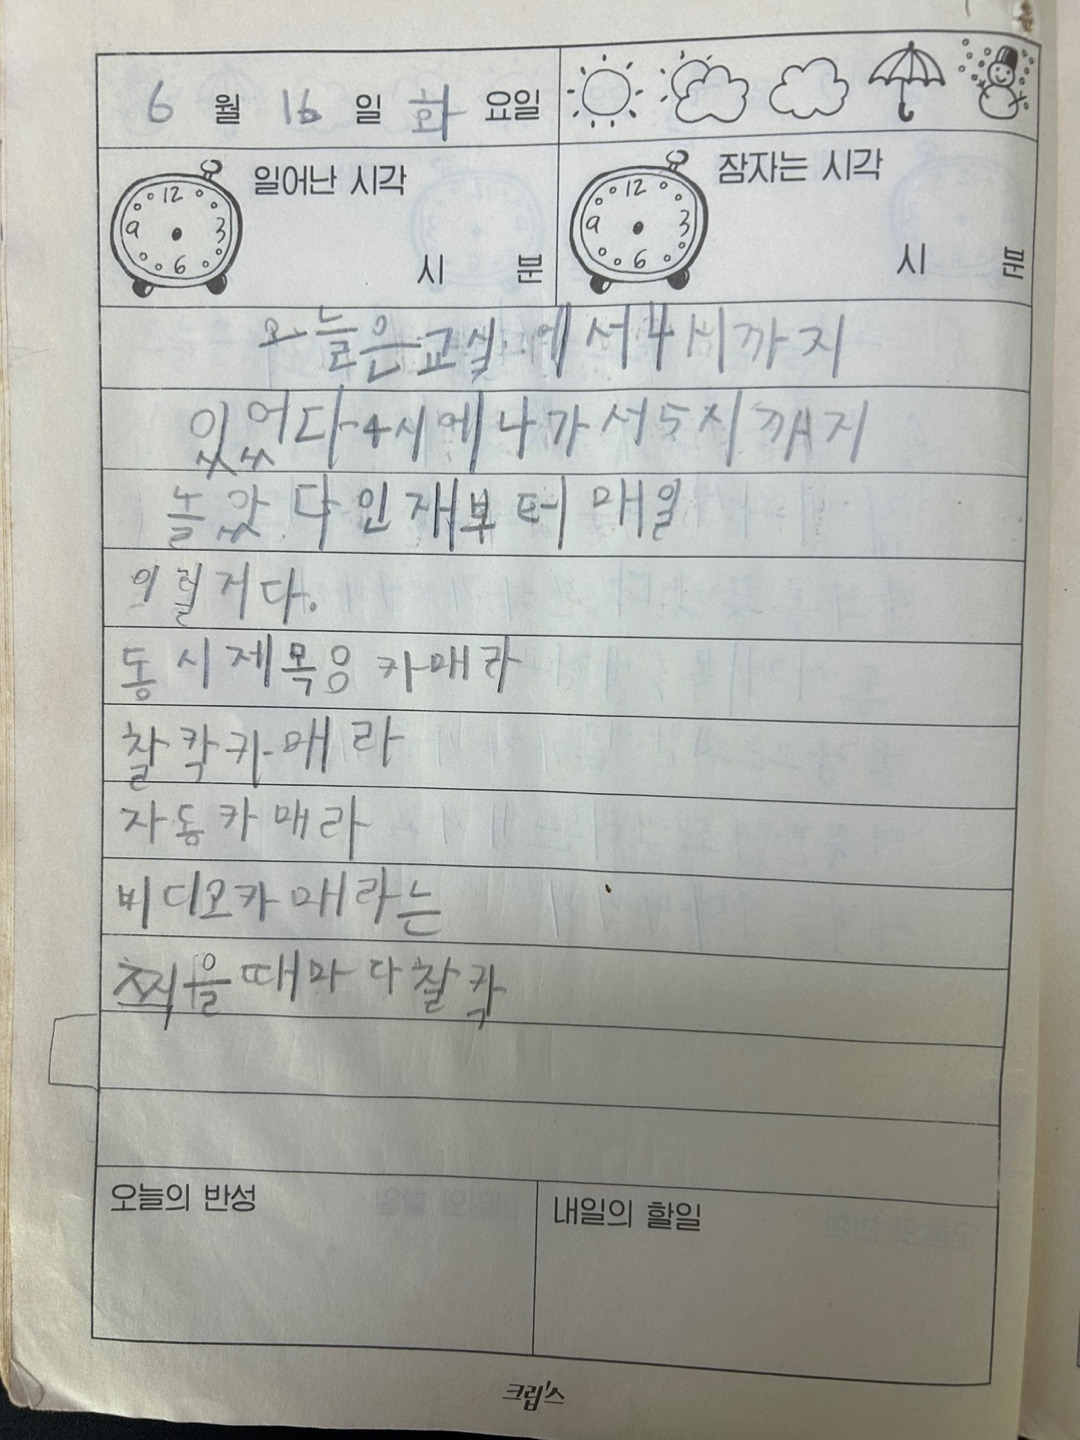 6 월 16 일 화 요일
일어난 시각
12
9 3
6
시 분
잠자는 시각
12
9 3
6
시 분
오늘은교실에서4시까지
있었다4시에나가서5시까지
놀았다인재부터매일
이럴거다.
동시제목응 카매라
찰칵카매라
자동카매라
비디오카매라는
찍을때마다찰칵
오늘의 반성
내일의 할일
크립스